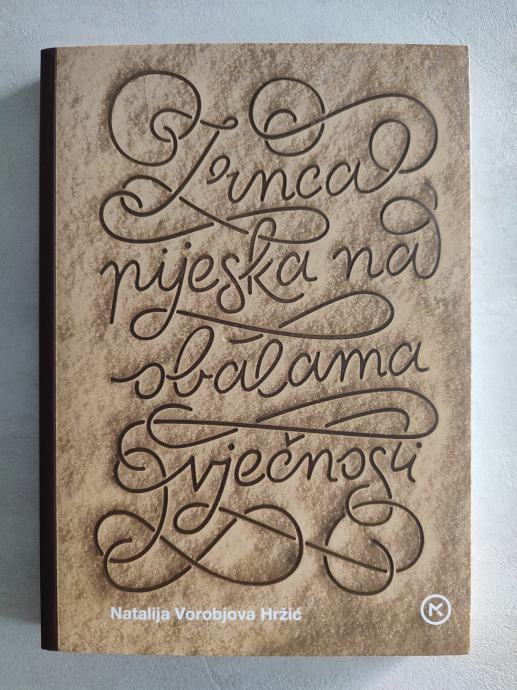 Zrnca
pijeska na
obalama
vječnosti
Natalija Vorobjova Hržić
M